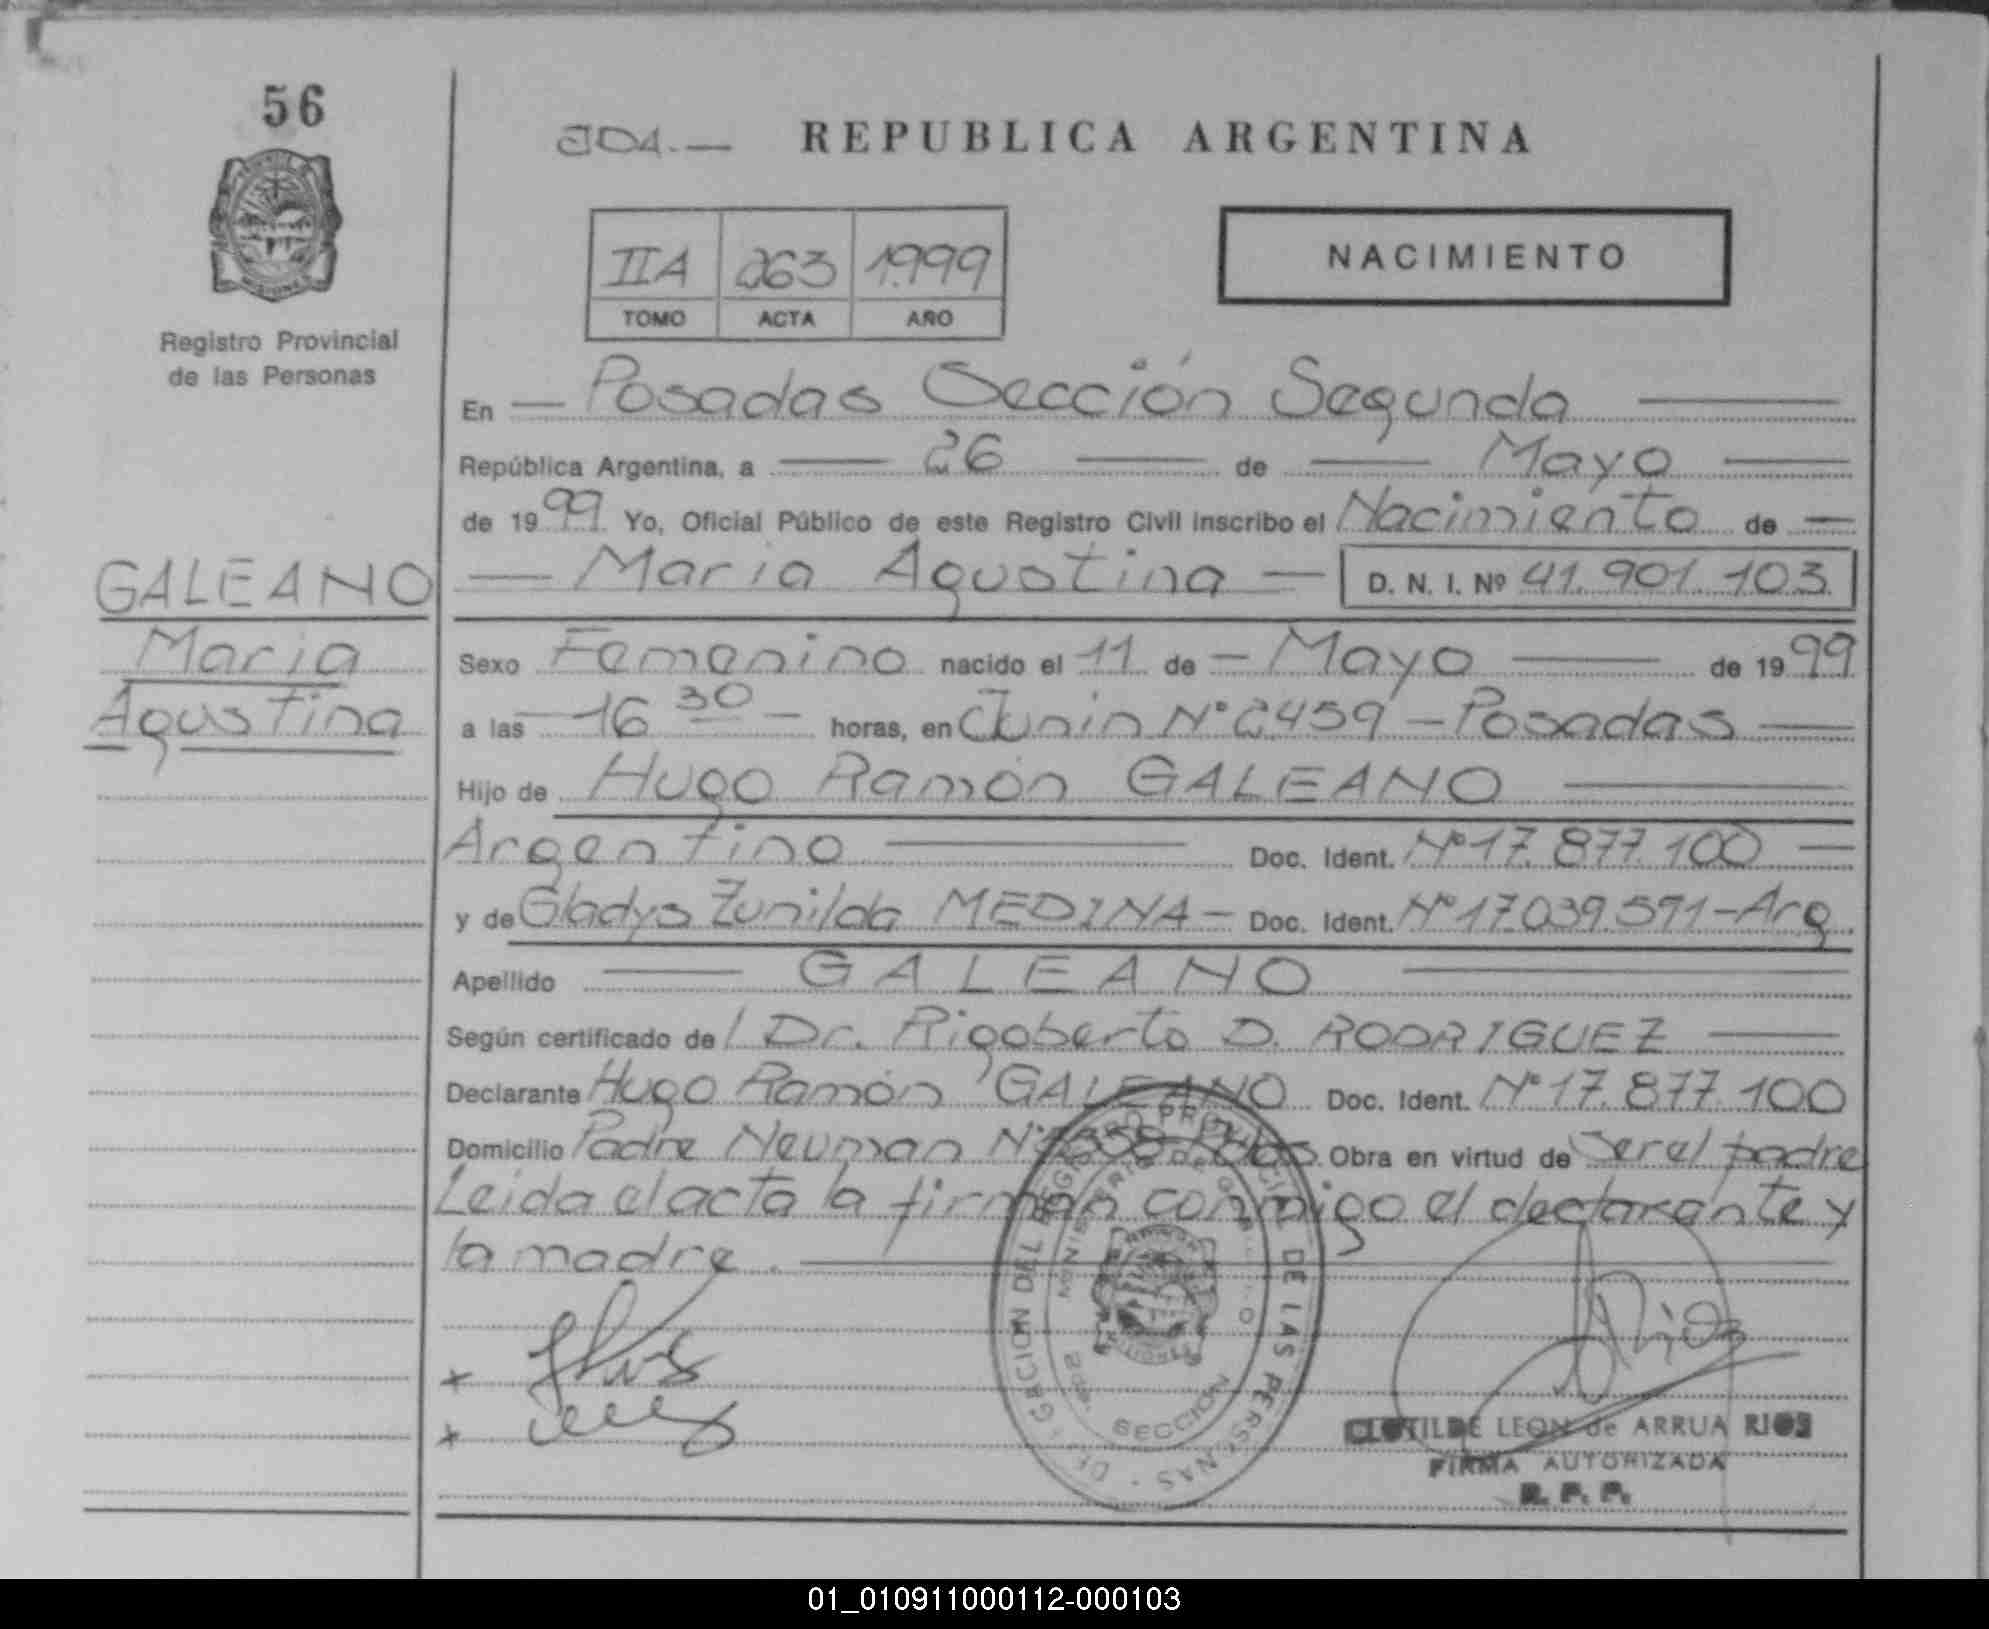 56
Registro Provincial
de las Personas
GALEANO
Maria
Agustina
REPUBLICA ARGENTINA
IIA 263 1.999
TOMO ACTA AÑO
NACIMIENTO
En — Posadas Sección Segunda —
República Argentina, a — 26 — de — Mayo —
de 1999 Yo, Oficial Público de este Registro Civil inscribo el Nacimiento de —
— Maria Agustina — D. N. I. Nº 41.901.103
Sexo Femenino nacido el 11 de — Mayo — de 1999
a las — 16 30 — horas, en Junin Nº 2459 - Posadas —
Hijo de Hugo Ramón GALEANO —
Argentino — Doc. Ident. Nº 17.877.100 —
y de Gladys Zunilda MEDINA — Doc. Ident. Nº 17.039.591 - Arg.
Apellido — GALEANO —
Según certificado de l Dr. Rigoberto D. RODRIGUEZ —
Declarante Hugo Ramón GALEANO Doc. Ident. Nº 17.877.100
Domicilio Padre Neuman Nº Obra en virtud de ser el padre
Leida el acta la firman conmigo el declarante y
la madre. —
DELEGACION DEL REGISTRO PROVINCIAL DE LAS PERSONAS
MINISTERIO DE GOBIERNO
SECCION
CLOTILDE LEON de ARRUA RIOS
FIRMA AUTORIZADA
R. P. P.
01_010911000112-000103